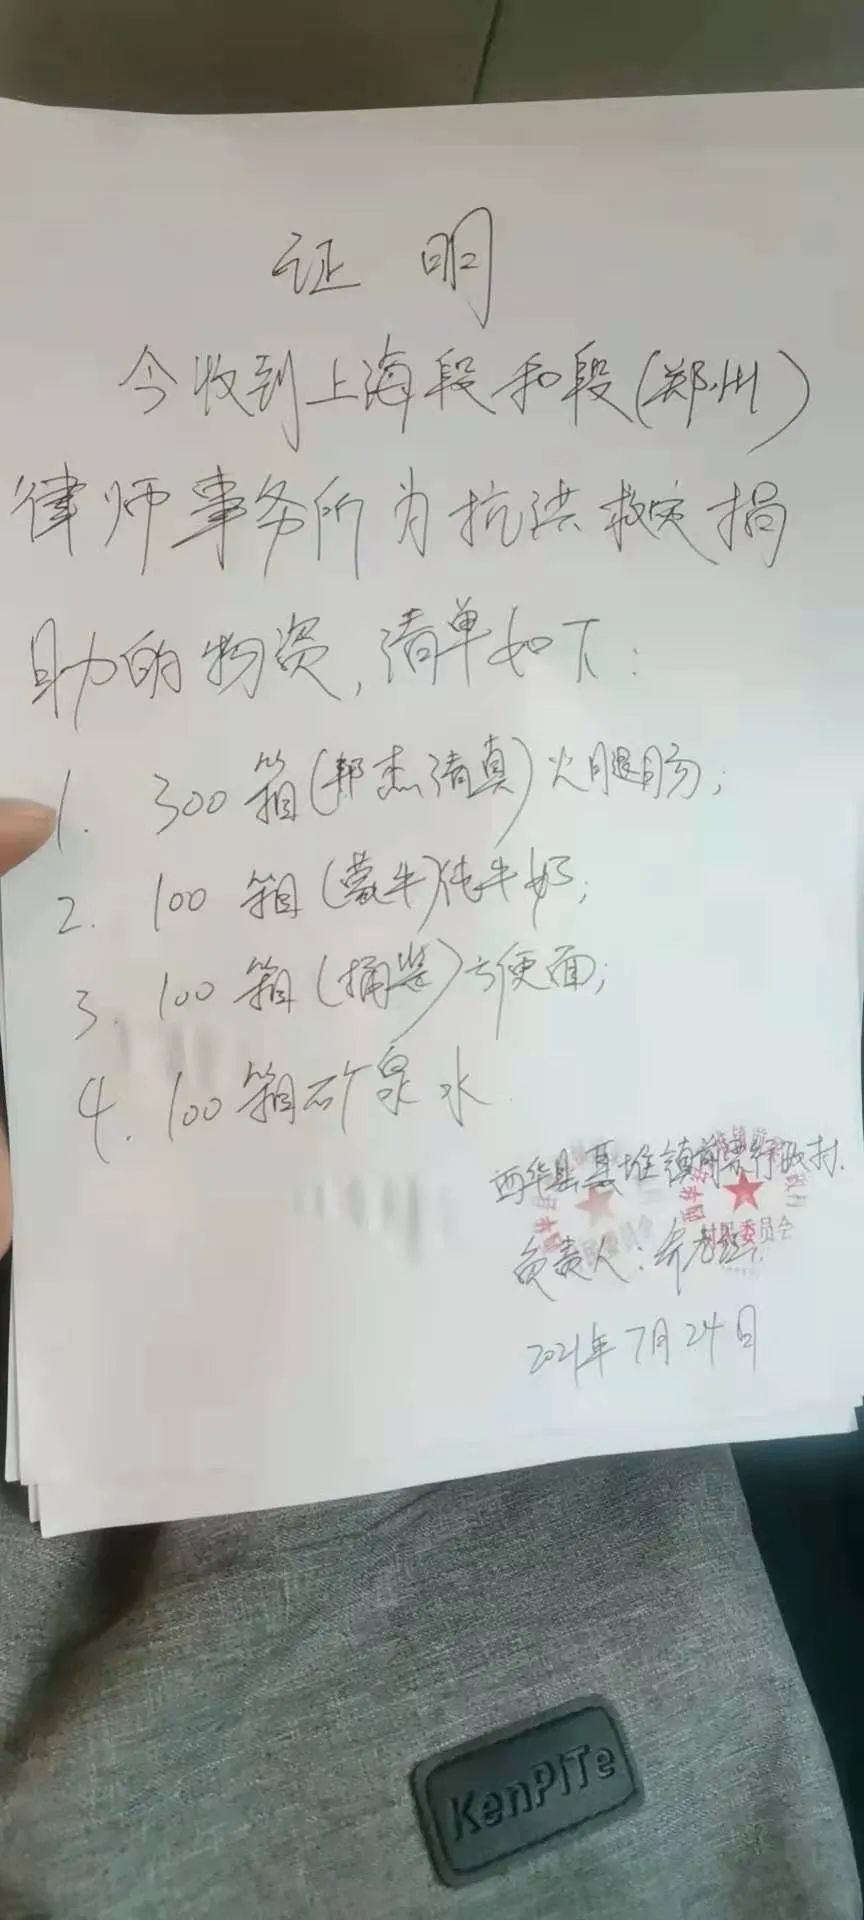 证明
今收到上海段和段(郑州)
律师事务所为抗洪救灾捐
助的物资,清单如下:
1. 300箱(邦杰清真)火腿肠;
2. 100箱(蒙牛)纯牛奶;
3. 100箱(桶装)方便面;
4. 100箱矿泉水.
西华县聂堆镇前票行政村.
村民委员会
负责人:
2021年7月24日
KenPiTe